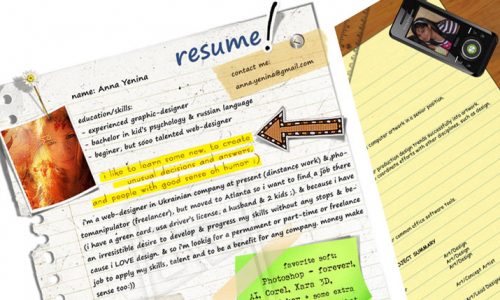 resume!
contact me:
anna.yenina@gmail.com
name: Anna Yenina
education/skills:
- experienced graphic-designer
- bachelor in kid's psychology & russian language
- beginer, but sooo talented web-designer
i like to learn some new, to create
unusual decisions and answers,
and people with good sense oh humor :)
i'm a web-designer in Ukrainian company at present (dinstance work) &,pho-
tomanipulator (freelancer), but moved to Atlanta so i want to find a job there
(i have a green card, use driver's license, a husband & 2 kids ;). & because i have
an irresistible desire to develop & progress my skills without any stops & be-
cause i LOVE design. & so i'm lookig for a permament or part-time or freelance
job to apply my skills, talent and to be a benefit for any company. money make
sense too:))
favorite soft:
Photoshop - forever!,
AI, Corel, Xara 3D,
+ some extra
computer artwork in a senior position.
production design trends successfully into artwork.
coordinate efforts with other disciplines, such as design,
common office software tools.
PROJECT SUMMARY
Art/Design
Art/Design
Art/Concept Artist
Art/Design
Art/Design